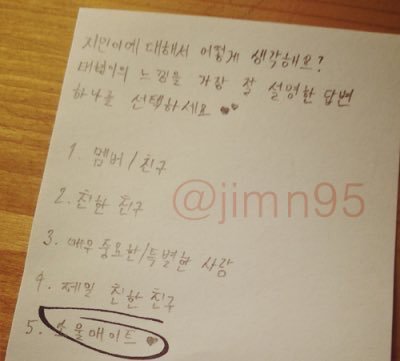 지민이에 대해서 어떻게 생각해요?
태형이의 느낌을 가장 잘 설명한 답변
하나를 선택하세요
1. 멤버/친구
2. 친한 친구
@jimn95
3. 매우 중요한/특별한 사람
4. 제일 친한 친구
5. 소울메이트